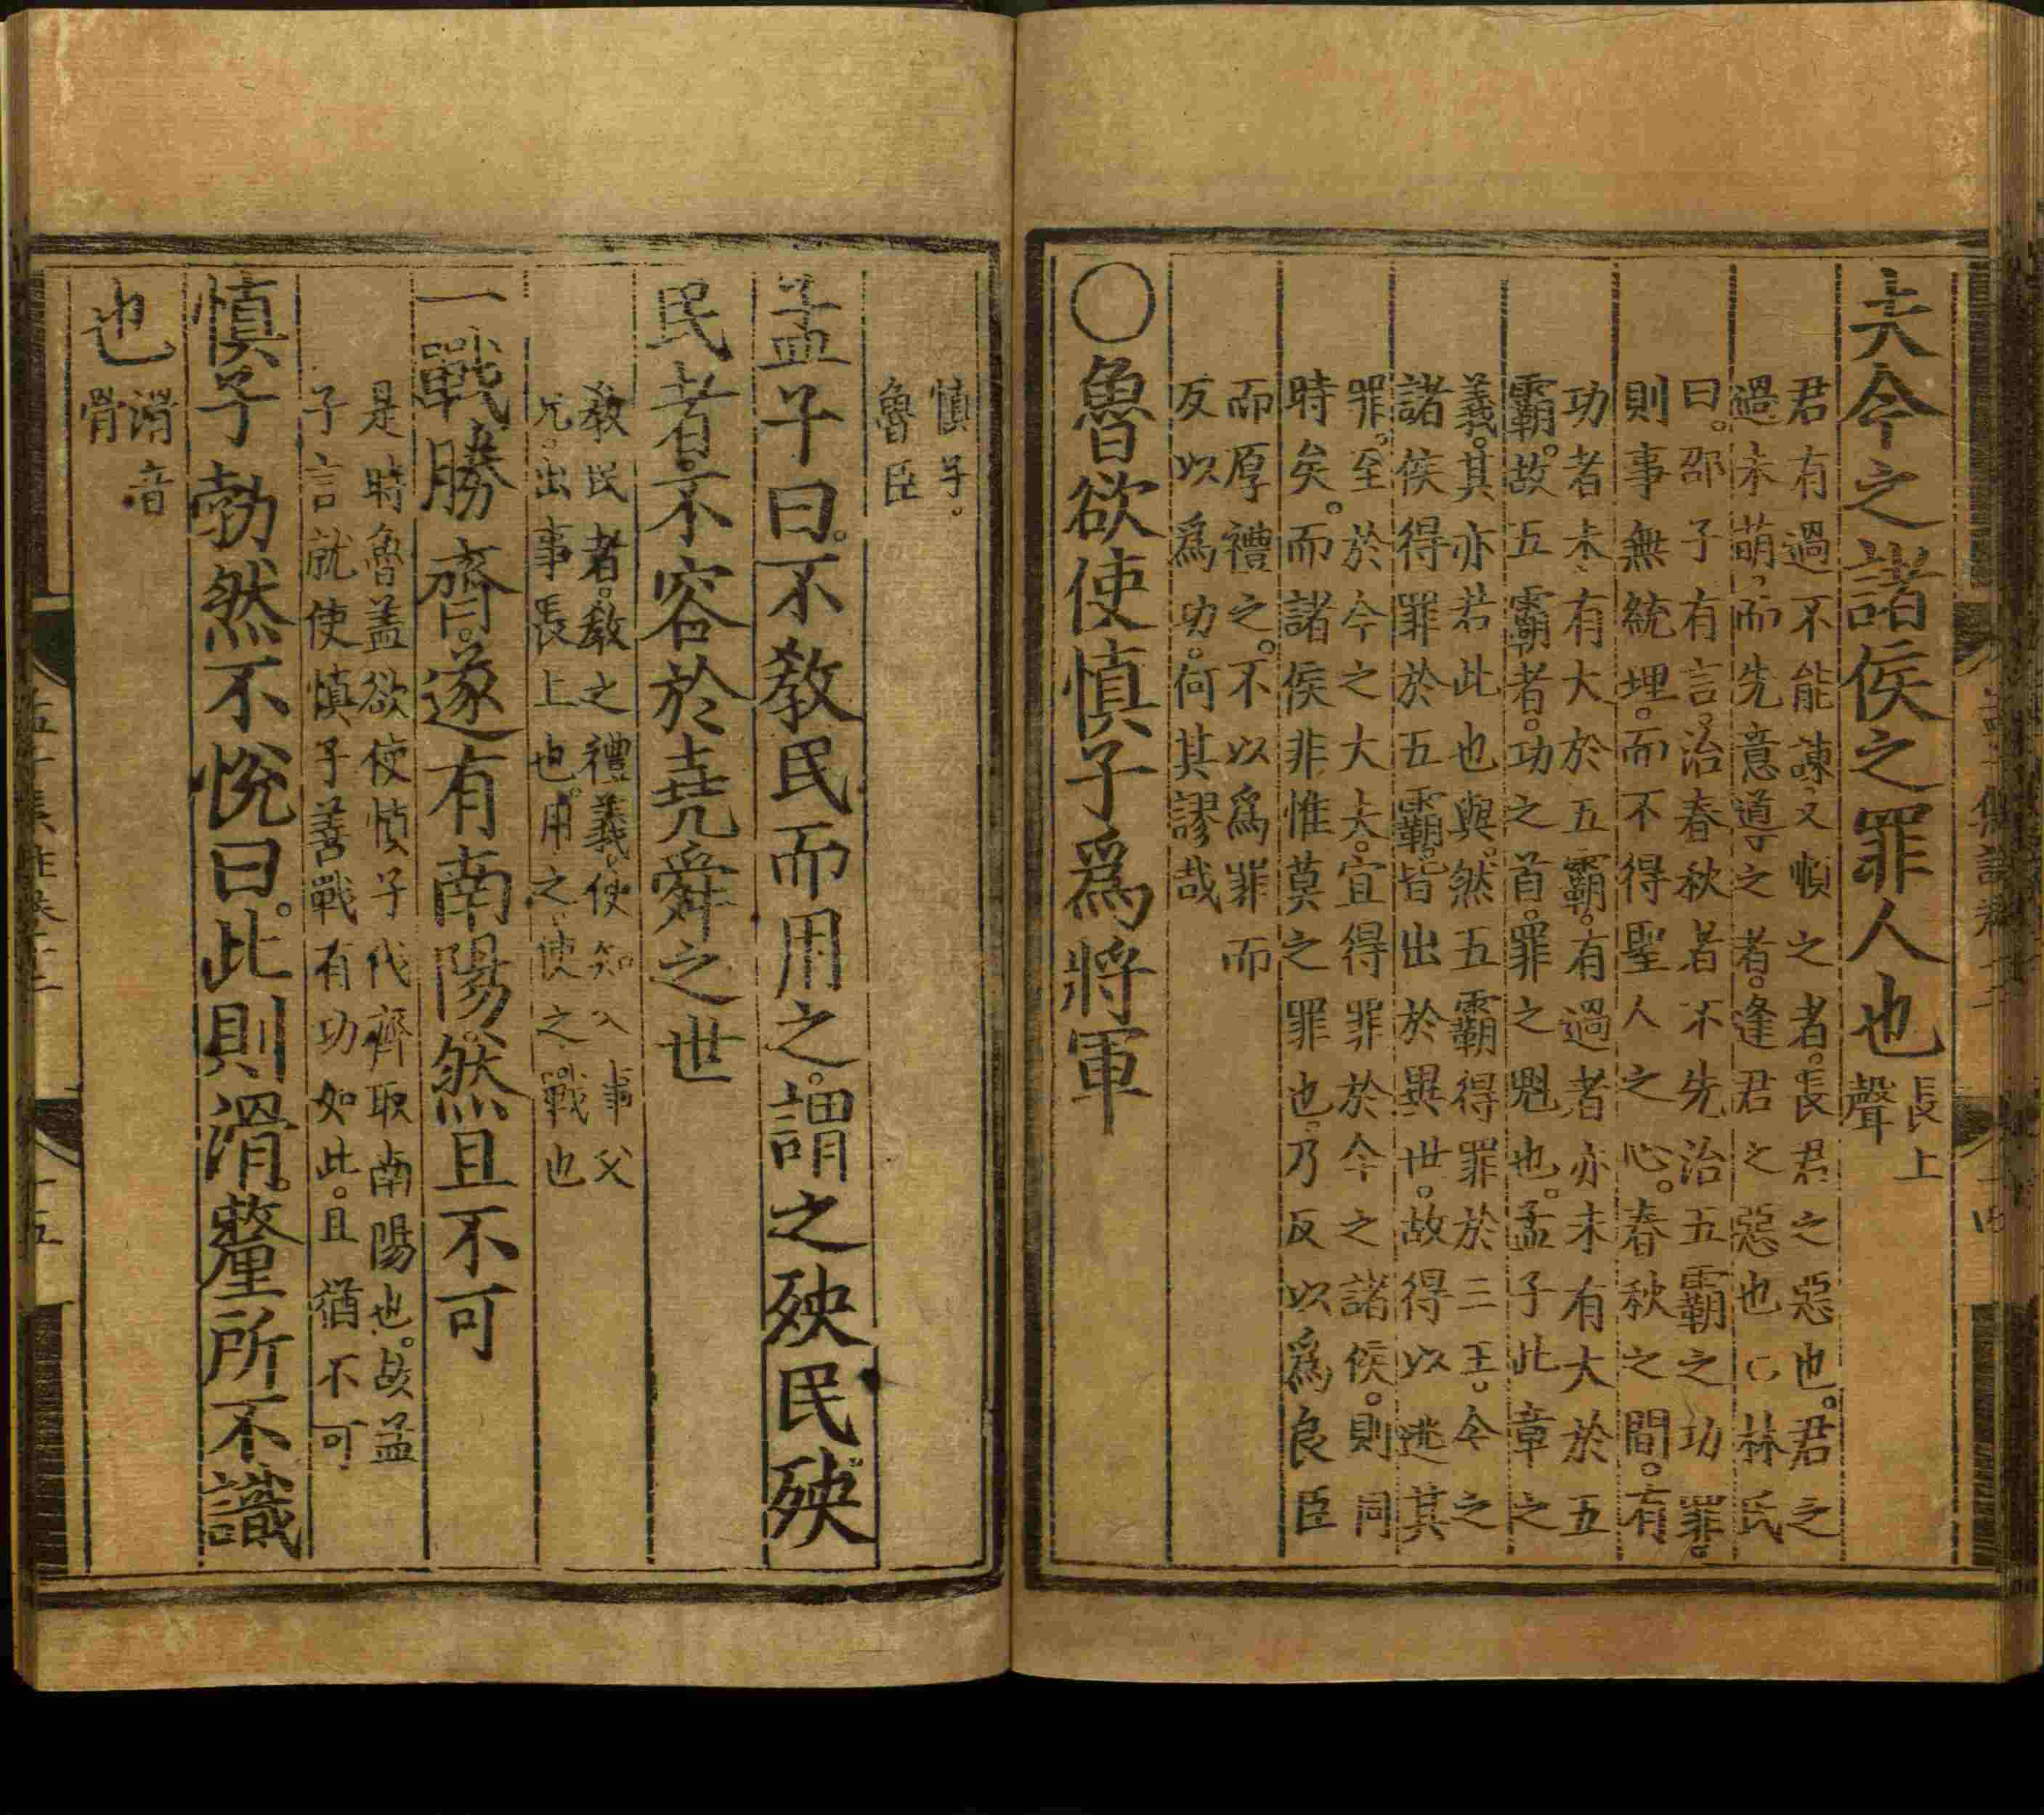 夫今之諸侯之罪人也長上
聲
君有過不能諫又順之者。長君之惡也。君之
過未萌而先意導之者。逢君之惡也○林氏
曰。邵子有言治春秋者不先治五霸之功罪。
則事無統理。而不得聖人之心。春秋之間。有
功者未有大於五霸。有過者亦未有大於五
霸。故五霸者。功之首。罪之魁也。孟子此章之
義。其亦若此也與。然五霸得罪於三王。今之
諸侯得罪於五霸。皆出於異世。故得以逃其
罪。至於今之大夫。宜得罪於今之諸侯。則同
時矣。而諸侯非惟莫之罪也。乃反以爲良臣
而厚禮之。不以爲罪而
反以爲功。何其謬哉
○魯欲使慎子爲將軍
慎子。
魯臣
孟子曰。不敎民而用之。謂之殃民殃
民者。不容於堯舜之世
敎民者。敎之禮義。使知入事父
兄。出事長上也。用之。使之戰也
一戰勝齊。遂有南陽。然且不可
是時魯蓋欲使慎子伐齊取南陽也。故孟
子言就使慎子善戰有功如此。且猶不可
慎子勃然不悅曰。此則滑。釐所不識
也滑音
骨